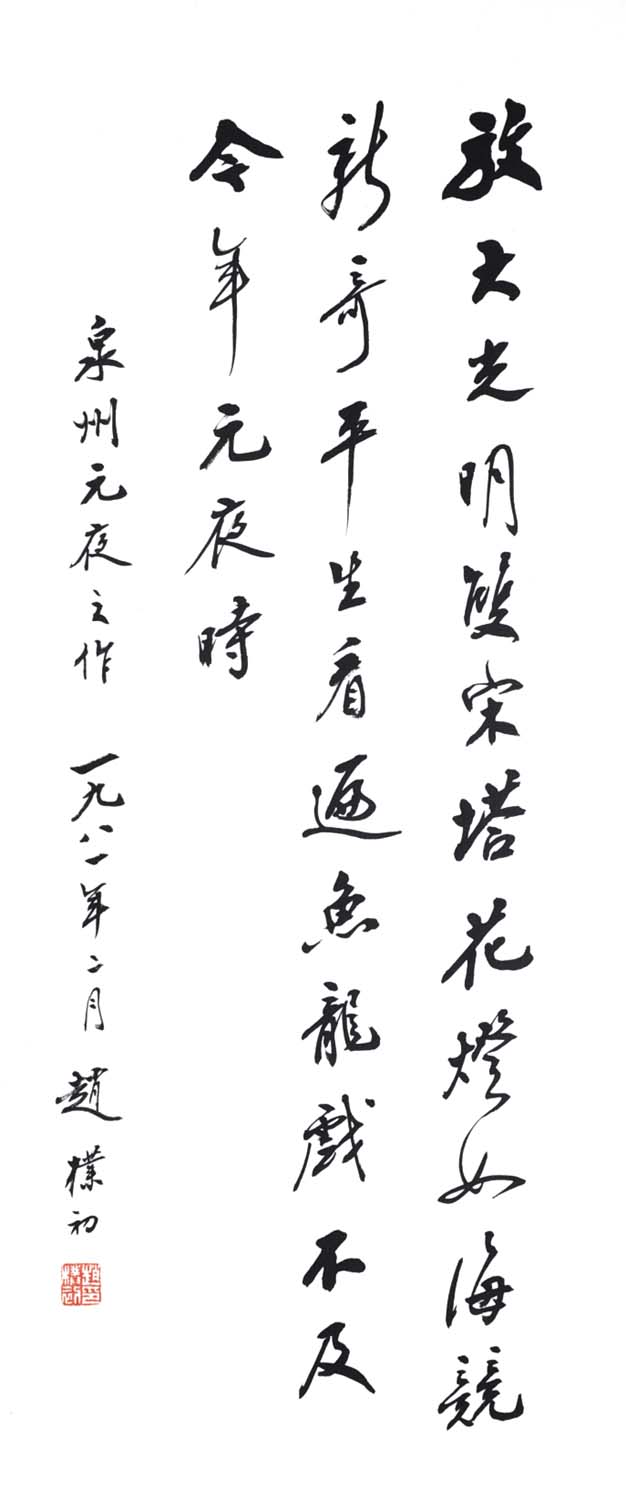 放大光明雙宋塔花燈如海競
新奇平生看遍魚龍戲不及
今年元夜時
泉州元夜之作 一九八一年二月 趙樸初
趙樸初印